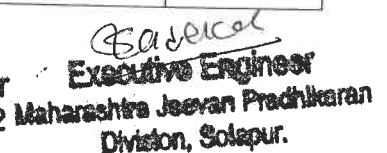 Executive Engineer
Maharashtra Jeevan Pradhikaran
Division, Solapur.